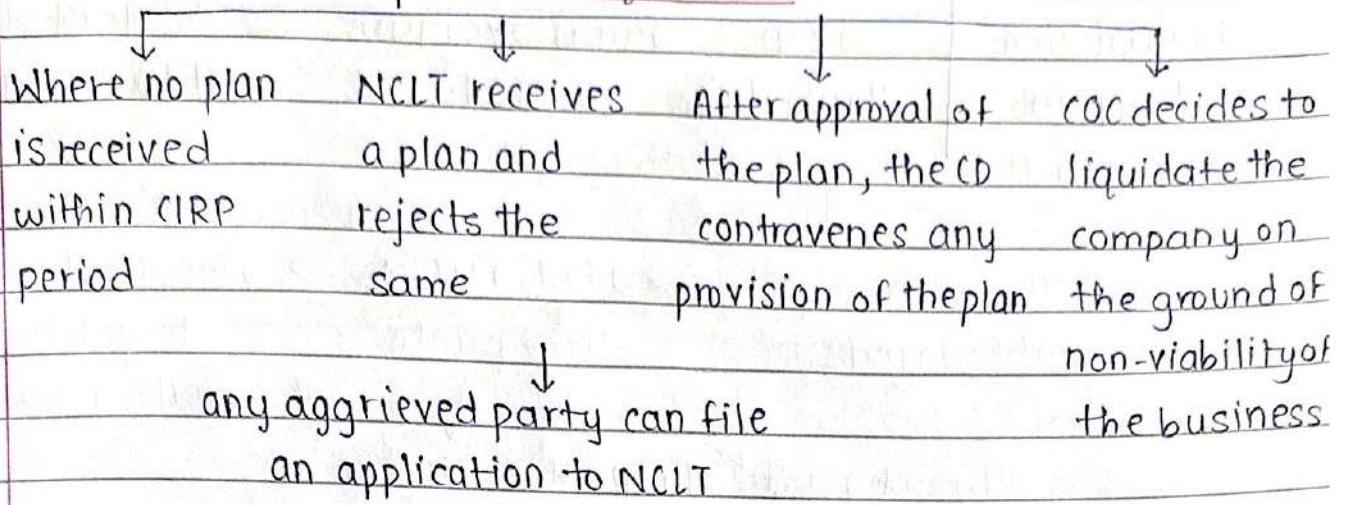 Where no plan
is received
within CIRP
period
NCLT receives
a plan and
rejects the
same
After approval of
the plan, the CD
contravenes any
provision of the plan
COC decides to
liquidate the
company on
the ground of
non-viability of
the business
any aggrieved party can file
an application to NCLT